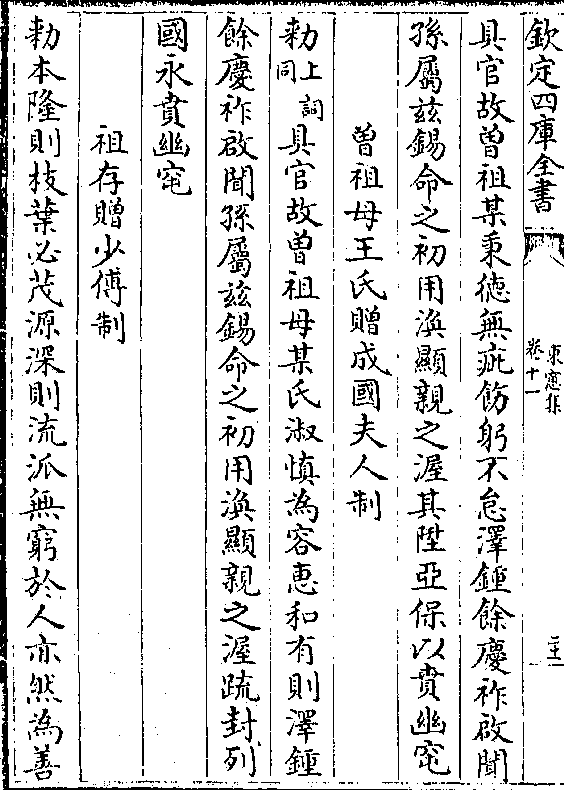 欽定四庫全書
東窻集
卷十一
二十一
具官故曽祖某秉德無疵飭躬不怠澤鍾餘慶祚啟聞
孫屬兹錫命之初用渙顯親之渥其陞亞保以賁幽窀
曽祖母王氏贈成國夫人制
勅上詞同具官故曽祖母某氏淑慎為容惠和有則澤鍾
餘慶祚啟聞孫屬兹錫命之初用渙顯親之渥䟽封列
國永賁幽窀
祖存贈少傅制
勅本隆則枝葉必茂源深則流派無窮於人亦然為善